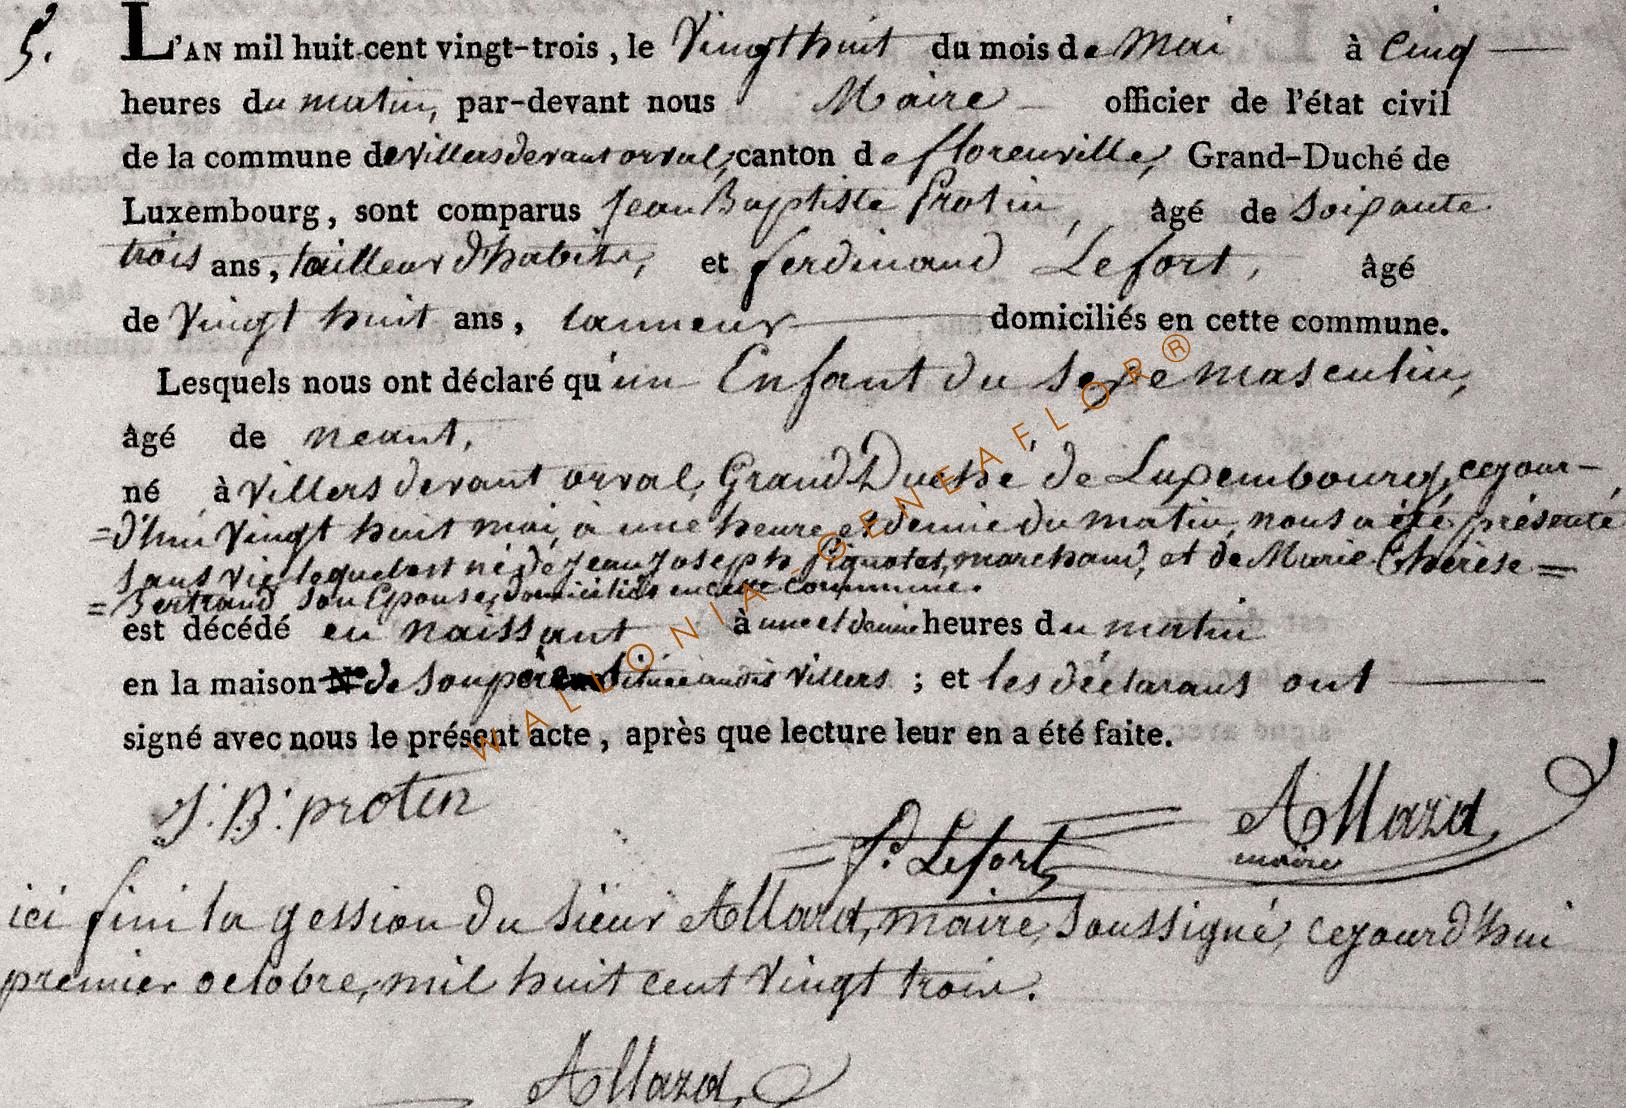 5.
L'AN mil huit cent vingt-trois, le Vingt huit du mois de Mai à Cinq
heures du matin, par-devant nous Maire officier de l'état civil
de la commune de villers devant orval, canton de florenville, Grand-Duché de
Luxembourg, sont comparus Jean Baptiste Protin, âgé de soixante
trois ans, tailleur d'habits, et ferdinand Lefort, âgé
de Vingt huit ans, tanneur domiciliés en cette commune.
Lesquels nous ont déclaré qu'un Enfant du sexe masculin,
âgé de neant,
né à Villers devant orval, Grand Duché de Luxembourg, cejour-
=d'hui Vingt huit mai, à une heure et demie du matin, nous a été présenté
sans vie, lequel est né de Jean Joseph Pignolet, marchand, et de Marie Thérèse =
= Bertrand son Epouse, domiciliés en cette commune.
est décédé en naissant à une et demie heures du matin
en la maison N° de son père située audit Villers ; et les déclarans ont
signé avec nous le présent acte, après que lecture leur en a été faite.
J: B: protin
f.d Lefort
Allard,
maire
ici fini la gession du sieur Allard, maire, soussigné, cejourd'hui
premier octobre, mil huit cent vingt trois.
Allard,
WALLONIA - GENEAFLOR ®